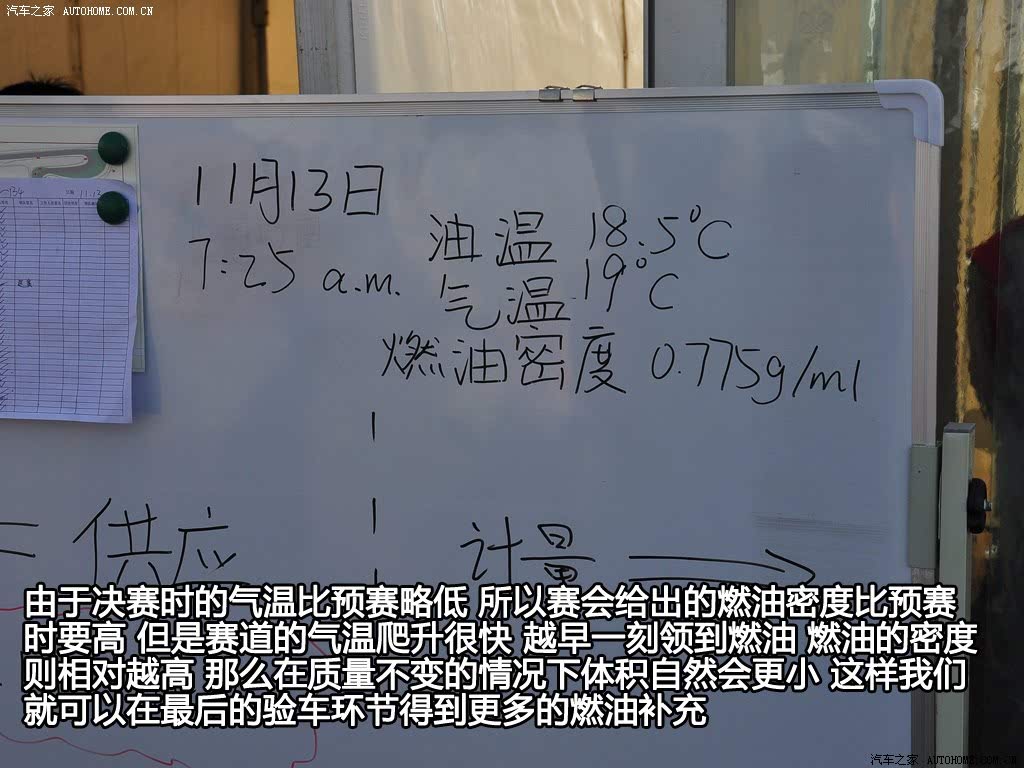 汽车之家 AUTOHOME.COM.CN
11月13日
7:25 a.m.
油温 18.5°C
气温 19°C
燃油密度 0.775g/ml
= 供应
计量 →
由于决赛时的气温比预赛略低 所以赛会给出的燃油密度比预赛
时要高 但是赛道的气温爬升很快 越早一刻领到燃油 燃油的密度
则相对越高 那么在质量不变的情况下体积自然会更小 这样我们
就可以在最后的验车环节得到更多的燃油补充
汽车之家 AUTOHOME.COM.CN